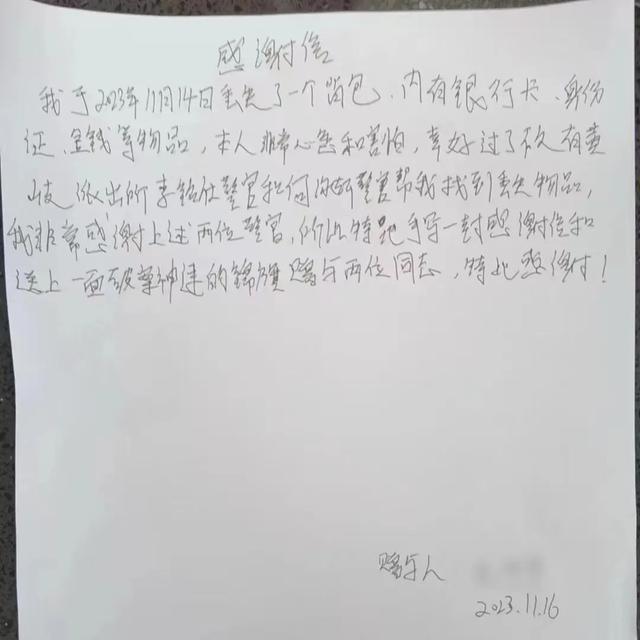 感谢信
我于2023年11月14日丢失了一个背包,内有银行卡、身份
证、金钱等物品,本人非常心急和害怕,幸好过了不久有黄
岐派出所李 警官和何 警官帮我找到丢失物品,
我非常感谢上述两位警官,所以特意手写一封感谢信和
送上一面破案神速的锦旗赠与两位同志,特此感谢!
赠与人
2023.11.16